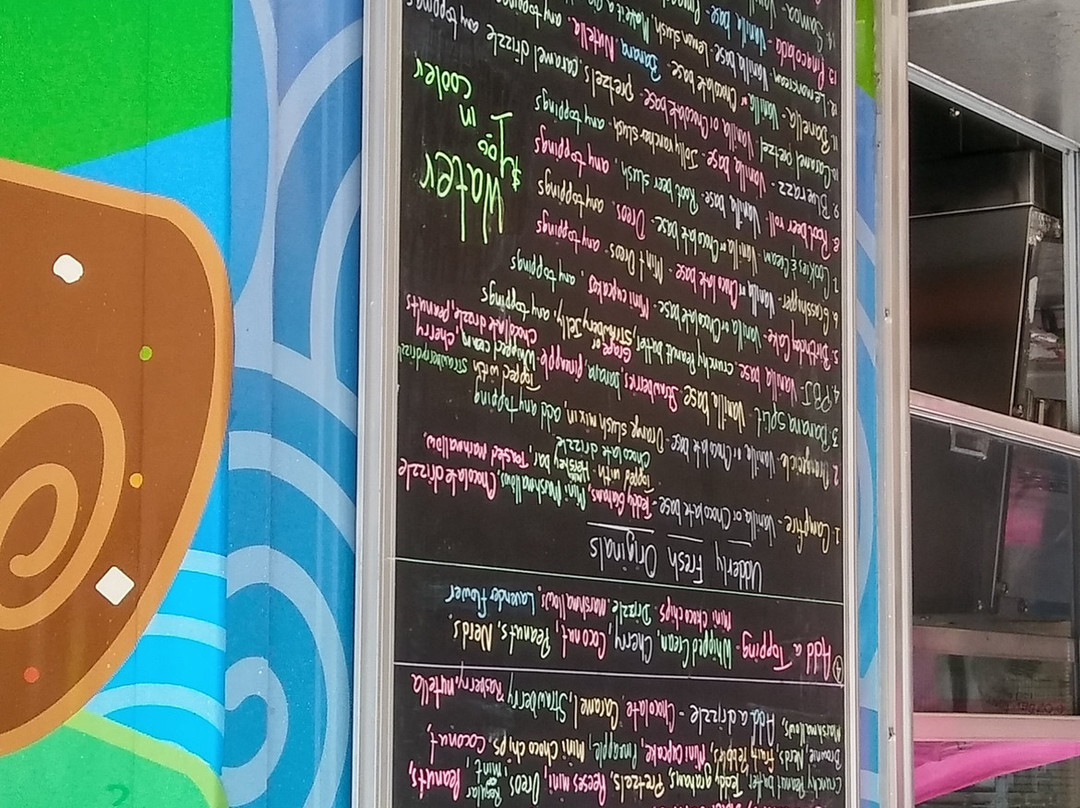 Regular
mint,
Crunchy Peanut butter, Teddy grahams, Pretzels, Oreos, Reeses mini, Peanuts,
Brownie, Nerds, Fruity Pebbles, Mini cupcake, Pineapple, Mini Choco chips, Coconut,
Marshmallows,
Add a drizzle - Chocolate, Caramel, Strawberry Rasberry, nutella
④ Add a Topping - Whipped Cream, Cherry, Coconut, Peanuts, Nerds,
Mini Choco chips Drizzle, Marshmallows Lavender flower
Udderly Fresh Originals
1. Campfire - Vanilla or Chocolate base - Teddy Grahams, Mini Marshmallows, Chocolate drizzle
Topped with Hershey bar, Toasted Marshmallow,
Chocolate drizzle
2. Orangsicle - Vanilla or Chocolate base - Orange slush mix in, add any topping
3. Banana Split - Vanilla base, Strawberries, banana, pineapple,
Topped with Whipped cream, Cherry,
Strawberry drizzle Chocolate drizzle, peanuts
4. PBJ Vanilla base, crunchy Peanut butter, Grape or Strawberry Jelly, any toppings
5. Birthday Cake - Vanilla or Chocolate base, Mini cupcakes, any toppings
6. Grasshopper - Vanilla or Chocolate base - Mint Oreos - any toppings
7. Cookies & Cream Vanilla or Chocolate base, Oreos, any toppings
8. Root beer roll - Vanilla base - Root beer slush, any toppings
9. Blue razz - Vanilla base Jolly rancher slush - any toppings
10. Caramel Pretzel Vanilla or Chocolate base - pretzels, caramel drizzle any toppings
11. Banella - Vanilla or Chocolate base - Banana, Nutella
12. Lemonicream Vanilla base Lemon slush, any toppings
13. Pinacolada - Vanilla base
14. Samoa Vanilla
Water
$1.00
in
cooler